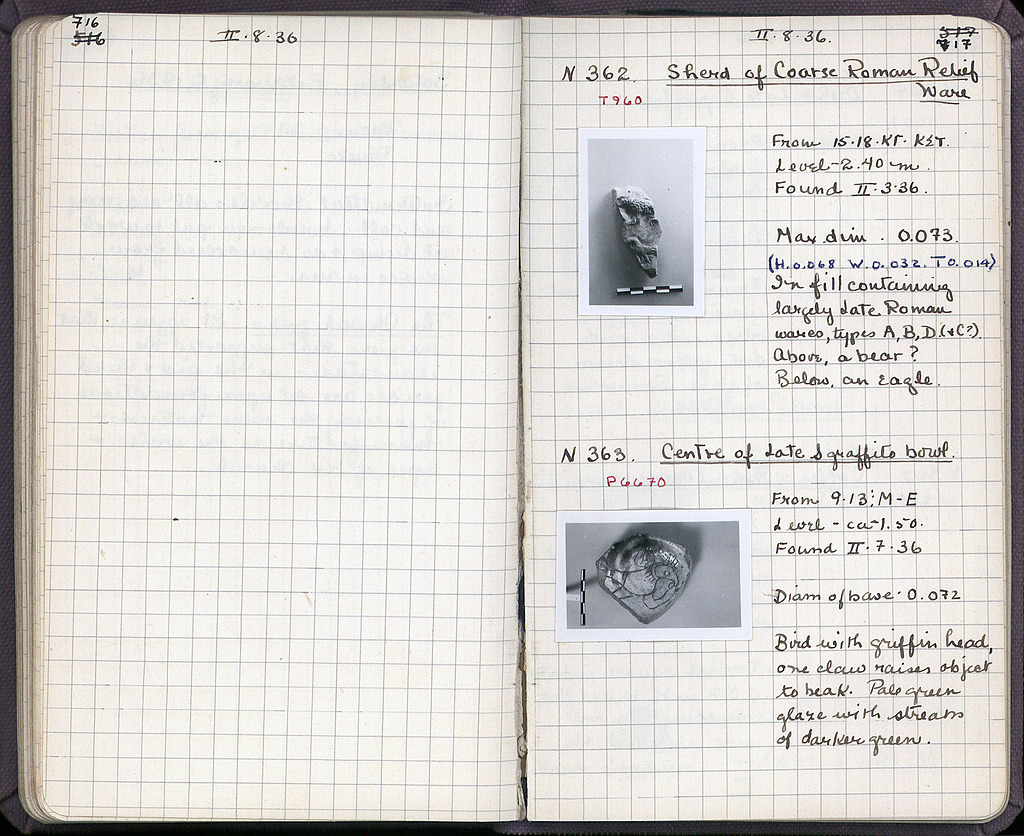 716
516
II·8·36
II·8·36.
517
717
N 362. Sherd of Coarse Roman Relief
Ware
T960
From 15·18·KΓ·KΣT.
Level -2.40 m.
Found II·3·36.
Max. dim. 0.073.
(H.0.068 W.0.032. T 0.014)
In fill containing
largely late Roman
wares, types A, B, D (& C?).
Above, a bear?
Below, an eagle.
N 363. Centre of late Sgraffito bowl.
P6670
From 9·13; M-E
Level - ca-1.50.
Found II·7·36
Diam of base· 0.072
Bird with griffin head,
one claw raises object
to beak. Pale green
glaze with streaks
of darker green.